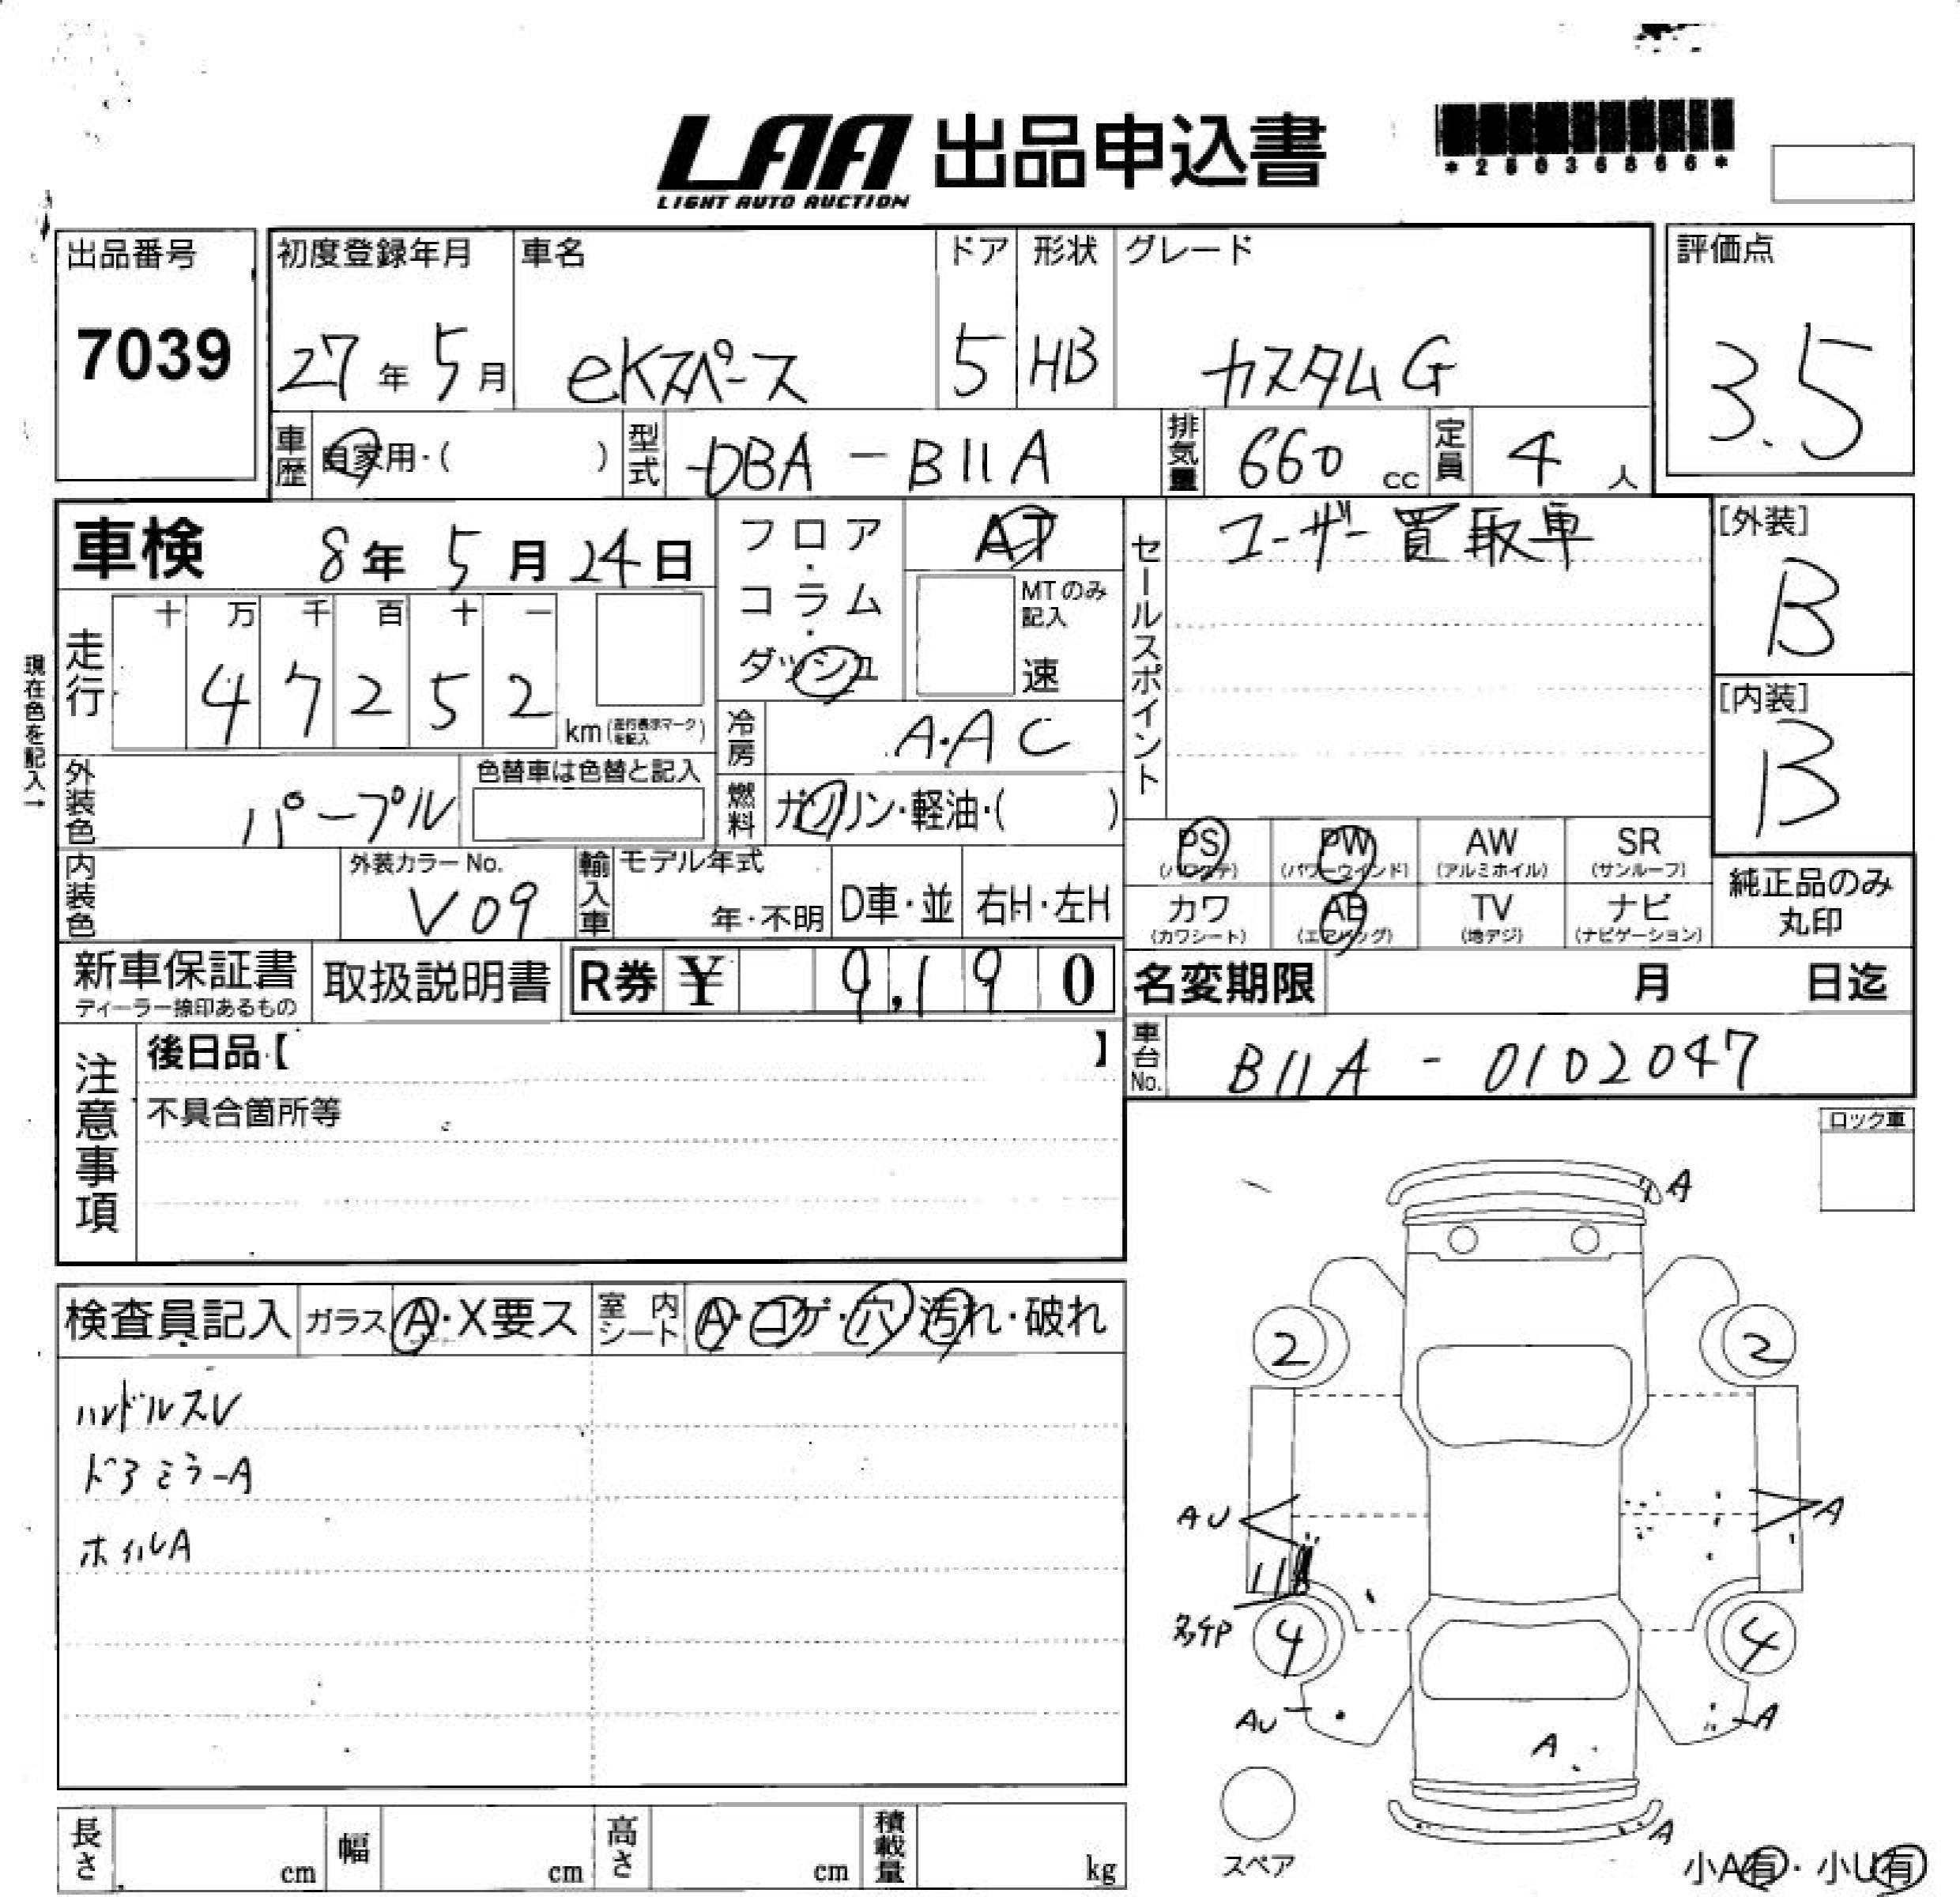 LAA 出品申込書
LIGHT AUTO AUCTION
出品番号
7039
初度登録年月
27年5月
車名
eKスペース
ドア
5
形状
HB
グレード
カスタムG
評価点
3.5
車歴
自家用・( )
型式
DBA-B11A
排気量
660cc
定員
4人
車検
8年5月24日
フロア・コラム・ダッシュ
AT
MTのみ記入
速
セールスポイント
ユーザー買取車
[外装]
B
[内装]
B
現在色を記入→
走行
十万千百十一
47252
km(走行表示マークを記入)
冷房
A.AC
外装色
パープル
色替車は色替と記入
燃料
ガソリン・軽油・( )
内装色
外装カラーNo.
V09
輸入車
モデル年式
年・不明
D車・並
右H・左H
PS
(パワステ)
PW
(パワーウインド)
AW
(アルミホイル)
SR
(サンルーフ)
カワ
(カワシート)
AB
(エアバッグ)
TV
(地デジ)
ナビ
(ナビゲーション)
純正品のみ
丸印
新車保証書
ディーラー捺印あるもの
取扱説明書
R券 ¥ 9,190
名変期限 月 日迄
注意事項
後日品【 】
不具合箇所等
車台No.
B11A-0102047
ロック車
検査員記入
ガラス A・X要ス
室内シート
A・コゲ・穴・汚れ・破れ
ハンドルスレ
ドアミラーA
ホイルA
A
2
2
AU
A
4
4
AU
A
A
A
スペア
小A有・小U有
長さ cm
幅 cm
高さ cm
積載量 kg